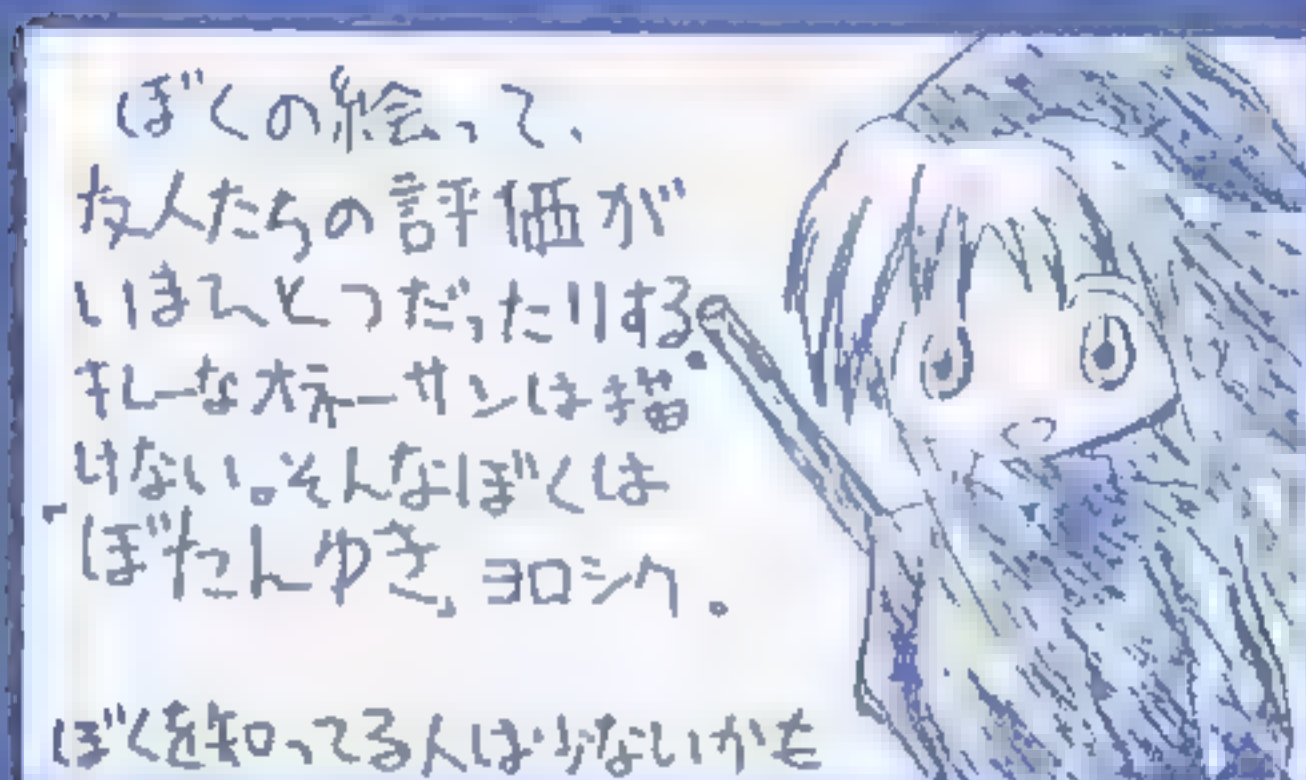 ぼくの絵って、
友人たちの評価が
いまひとつだったりする。
キレーなオネーサンは描
けない。そんなぼくは
ぼたんゆき、ヨロシク。
ぼくを知ってる人は少ないかも